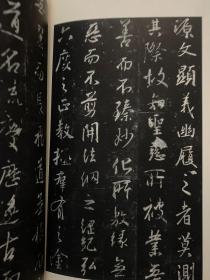 源文顯義幽履之者莫測
其際故知聖慈所被業無
善而不臻妙化所敷緣無
惡而不剪開法網之綱紀弘
六度之正教拯群有之塗
道名流慶歷遂古而